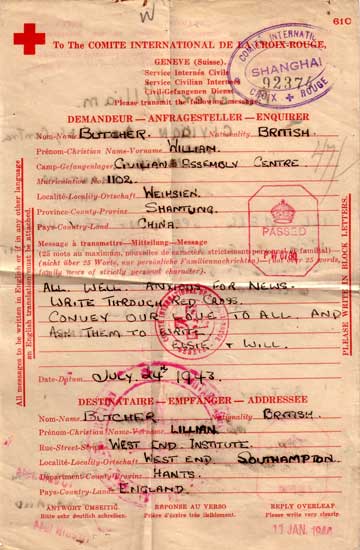 W
61C
To The COMITE INTERNATIONAL DE LA CROIX-ROUGE,
GENEVE (Suisse).
Service Internés Civils
Civil-Gefangenen Dienst
Please transmit the following message.
COMITE INTERNATIONAL
SHANGHAI
92374
CROIX ROUGE
DEMANDEUR—ANFRAGESTELLER—ENQUIRER
Nom-Name BUTCHER. Nationality BRITISH.
Prénom-Christian Name-Vorname WILLIAM.
Camp-Gefangenlager CIVILIAN ASSEMBLY CENTRE.
Matriculation No. 1102.
Localité-Locality-Ortschaft WEIHSIEN.
Province-County-Provinz SHANTUNG.
Pays-Country-Land CHINA.
PASSED
Message à transmettre—Mitteilung—Message
(25 mots au maximum, nouvelles de caractère strictement personnel et familial)
(nicht über 25 Worte, nur persönliche Familiennachrichten) (Not over 25 words, family news of strictly personal character).
ALL WELL. ANXIOUS FOR NEWS.
WRITE THROUGH RED CROSS.
CONVEY OUR LOVE TO ALL. AND
ASK THEM TO WRITE.
ELSIE + WILL.
Date-Datum JULY. 24th 1943.
DESTINATAIRE—EMPFÄNGER—ADDRESSEE
Nom-Name BUTCHER Nationality BRITISH.
Prénom-Christian Name-Vorname LILLIAN.
Rue-Street-Strasse WEST END INSTITUTE.
Localité-Locality-Ortschaft WEST END. SOUTHAMPTON.
Department-County-Provinz HANTS.
Pays-Country-Land ENGLAND.
ANTWORT UMSEITIG. RÉPONSE AU VERSO REPLY OVERLEAF.
Bitte sehr deutlich schreiben. Prière d'écrire très lisiblement. Please write very clearly.
11 JAN. 1944
All messages to be written in English or if in any other language
an English translation must be attached.
PLEASE WRITE IN BLOCK LETTERS.